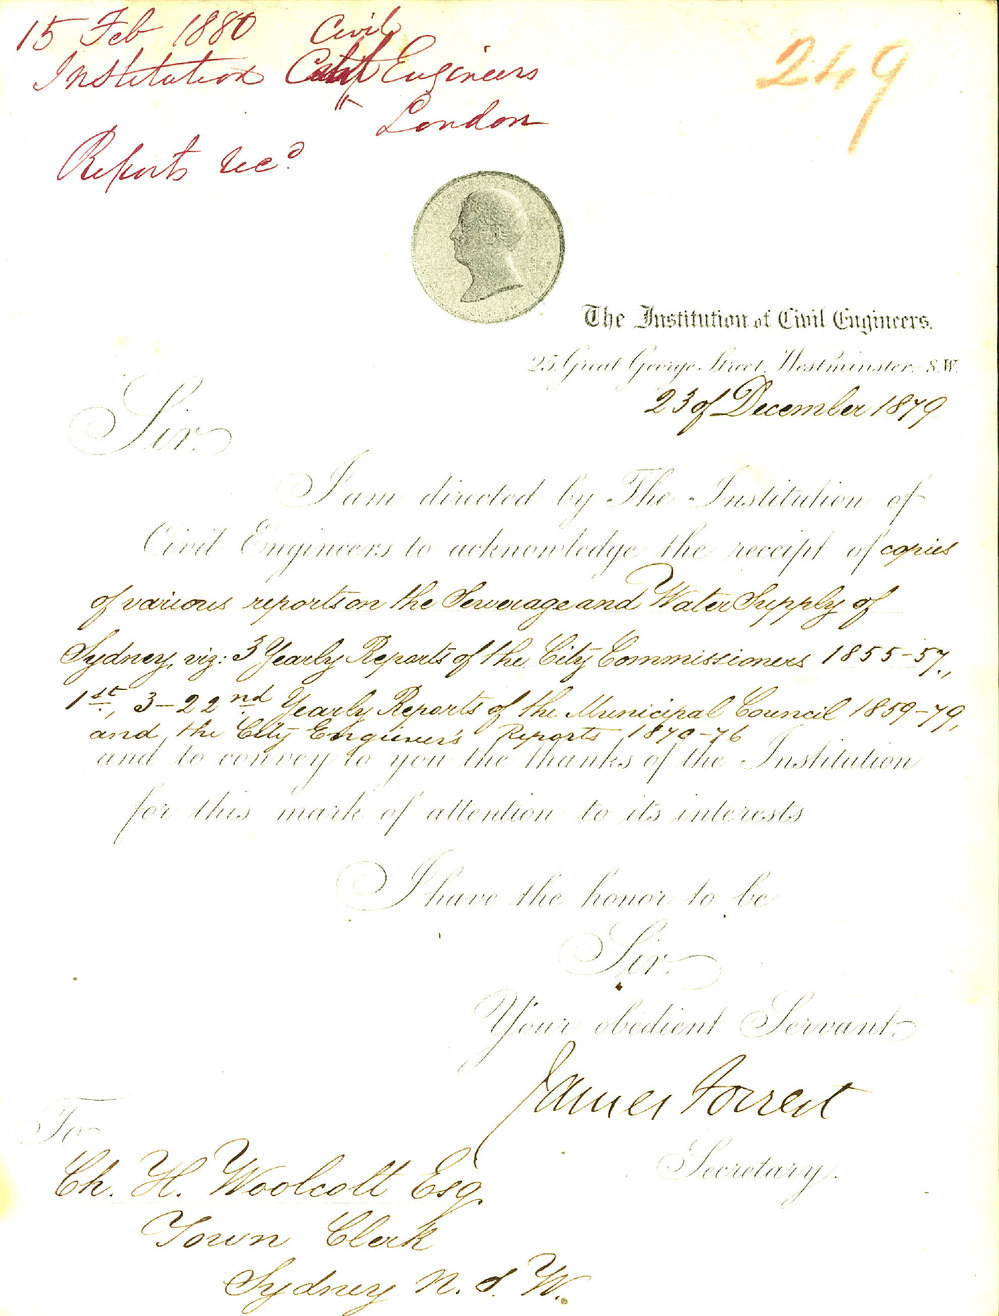 15 Feb 1880 Civil
Institution Engineers
" London
Reports recd
249
The Institution of Civil Engineers.
25, Great George Street, Westminster, S.W.
23 of December 1879
Sir.
I am directed by The Institution of
Civil Engineers to acknowledge the receipt of copies
of various reports on the Sewerage and Water Supply of
Sydney, viz: 3 Yearly Reports of the City Commissioners 1855-57,
1st, 3-22nd Yearly Reports of the Municipal Council 1859-79,
and the City Engineer's Reports 1870-76
and to convey to you the thanks of the Institution
for this mark of attention to its interests
I have the honor to be
Sir.
Your obedient Servant.
James Forrest
Secretary.
To
Ch. H. Woolcott Esq.
Town Clerk
Sydney N. S. W.